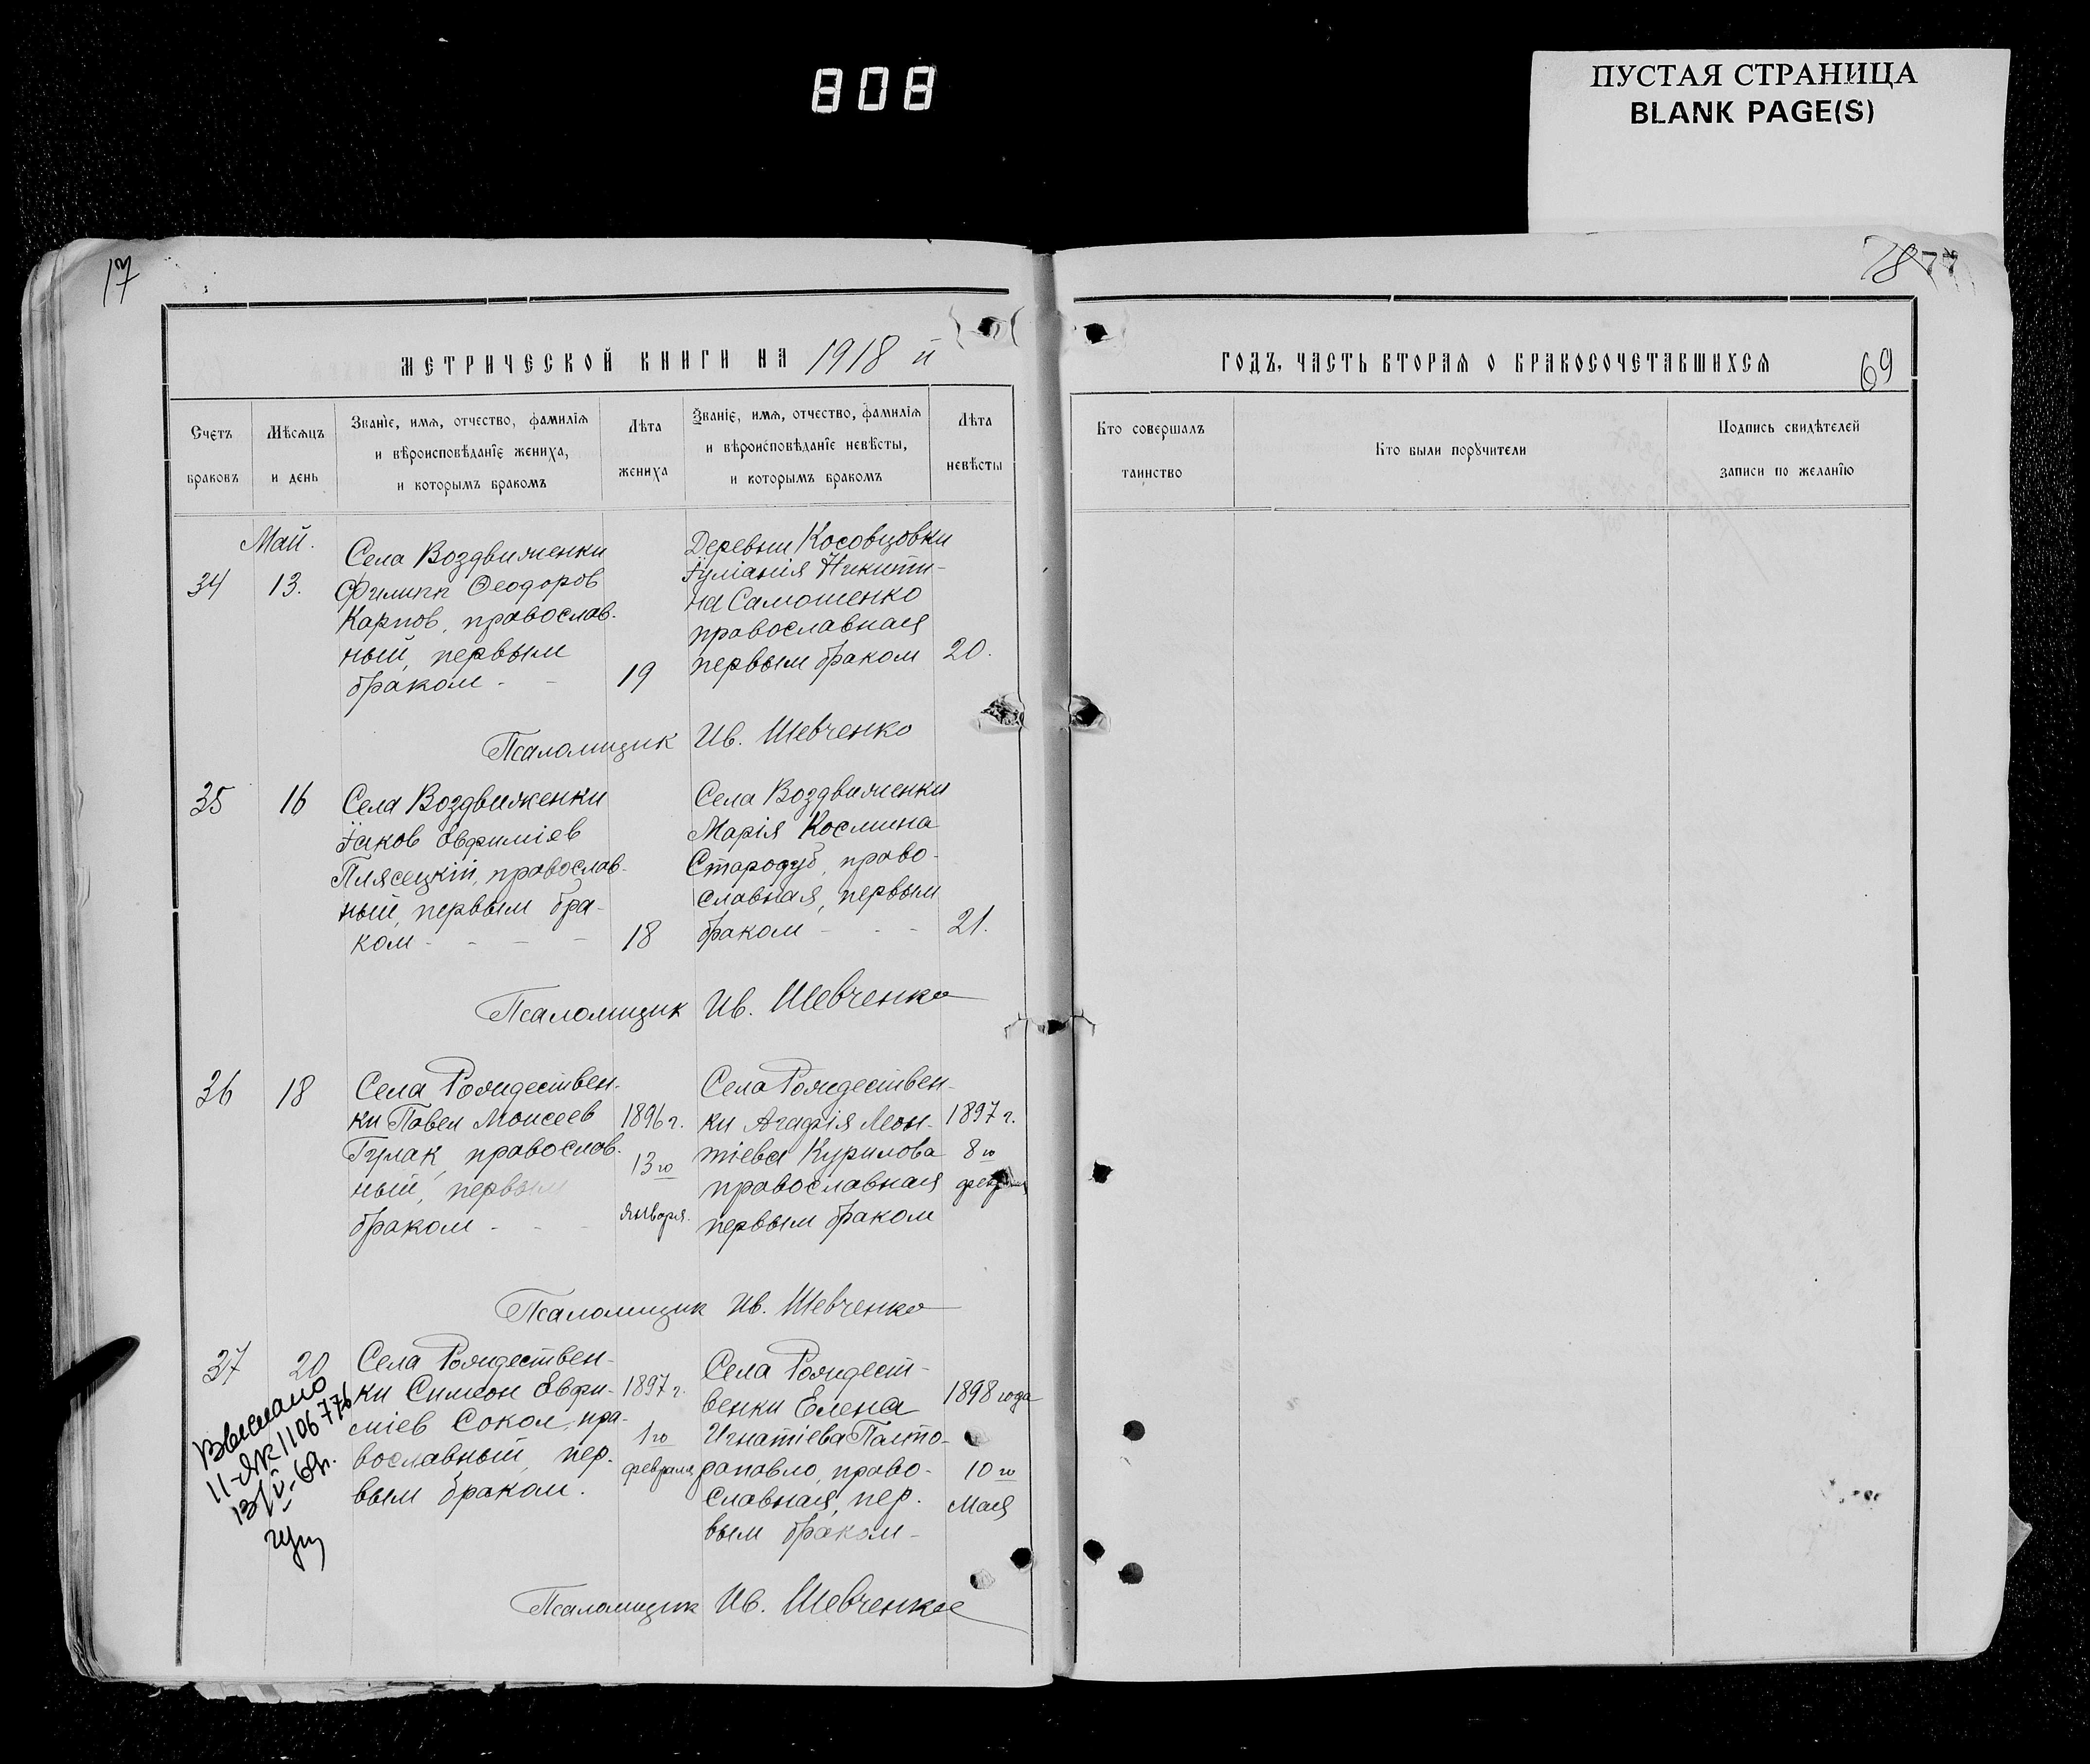 808
ПУСТАЯ СТРАНИЦА
BLANK PAGE(S)
17
78 77
МЕТРИЧЕСКОЙ КНИГИ НА 1918 й
ГОДЪ, ЧАСТЬ ВТОРАЯ О БРАКОСОЧЕТАВШИХСЯ
69
Счетъ
браковъ
Мѣсяцъ
и день
Званіе, имя, отчество, фамилія
и вѣроисповѣданіе жениха,
и которымъ бракомъ
Лѣта
жениха
Званіе, имя, отчество, фамилія
и вѣроисповѣданіе невѣсты,
и которымъ бракомъ
Лѣта
невѣсты
Кто совершалъ
таинство
Кто были поручители
Подпись свидѣтелей
записи по желанію
34
Май.
13.
Села Воздвиженки
Филипп Ѳеодоров
Карпов, православ-
ный, первым
браком - -
19
Деревни Косовцовки
Іуліанія Никити-
на Самошенко
православная
первым браком
20.
Псаломщик Ив. Шевченко
35
16
Села Воздвиженки
Іаков Евфиміев
Плясецкій, православ-
ный, первым бра-
ком - - - -
18
Села Воздвиженки
Марія Космина
Стародуб, право-
славная, первым
браком - - -
21.
Псаломщик Ив. Шевченко
36
18
Села Рождествен-
ки Павел Моисеев
Гулак, православ-
ный, первым
браком - - -
1896 г.
13го
января.
Села Рождествен-
ки Агафія Леон-
тіева Курилова
православная
первым браком
1897 г.
8го
Псаломщик Ив. Шевченко
37
20
Села Рождествен-
ки Симеон Евфи-
міев Сокол, пра-
вославный, пер-
вым браком.
1897 г.
1го
февраля
Села Рождест-
венки Елена
Игнатіева Полто-
рапавло, право-
славная, пер-
вым браком -
1898 года
10го
Мая
Выслано
11-ЯК 1106776
13/V-69г.
Псаломщик Ив. Шевченко